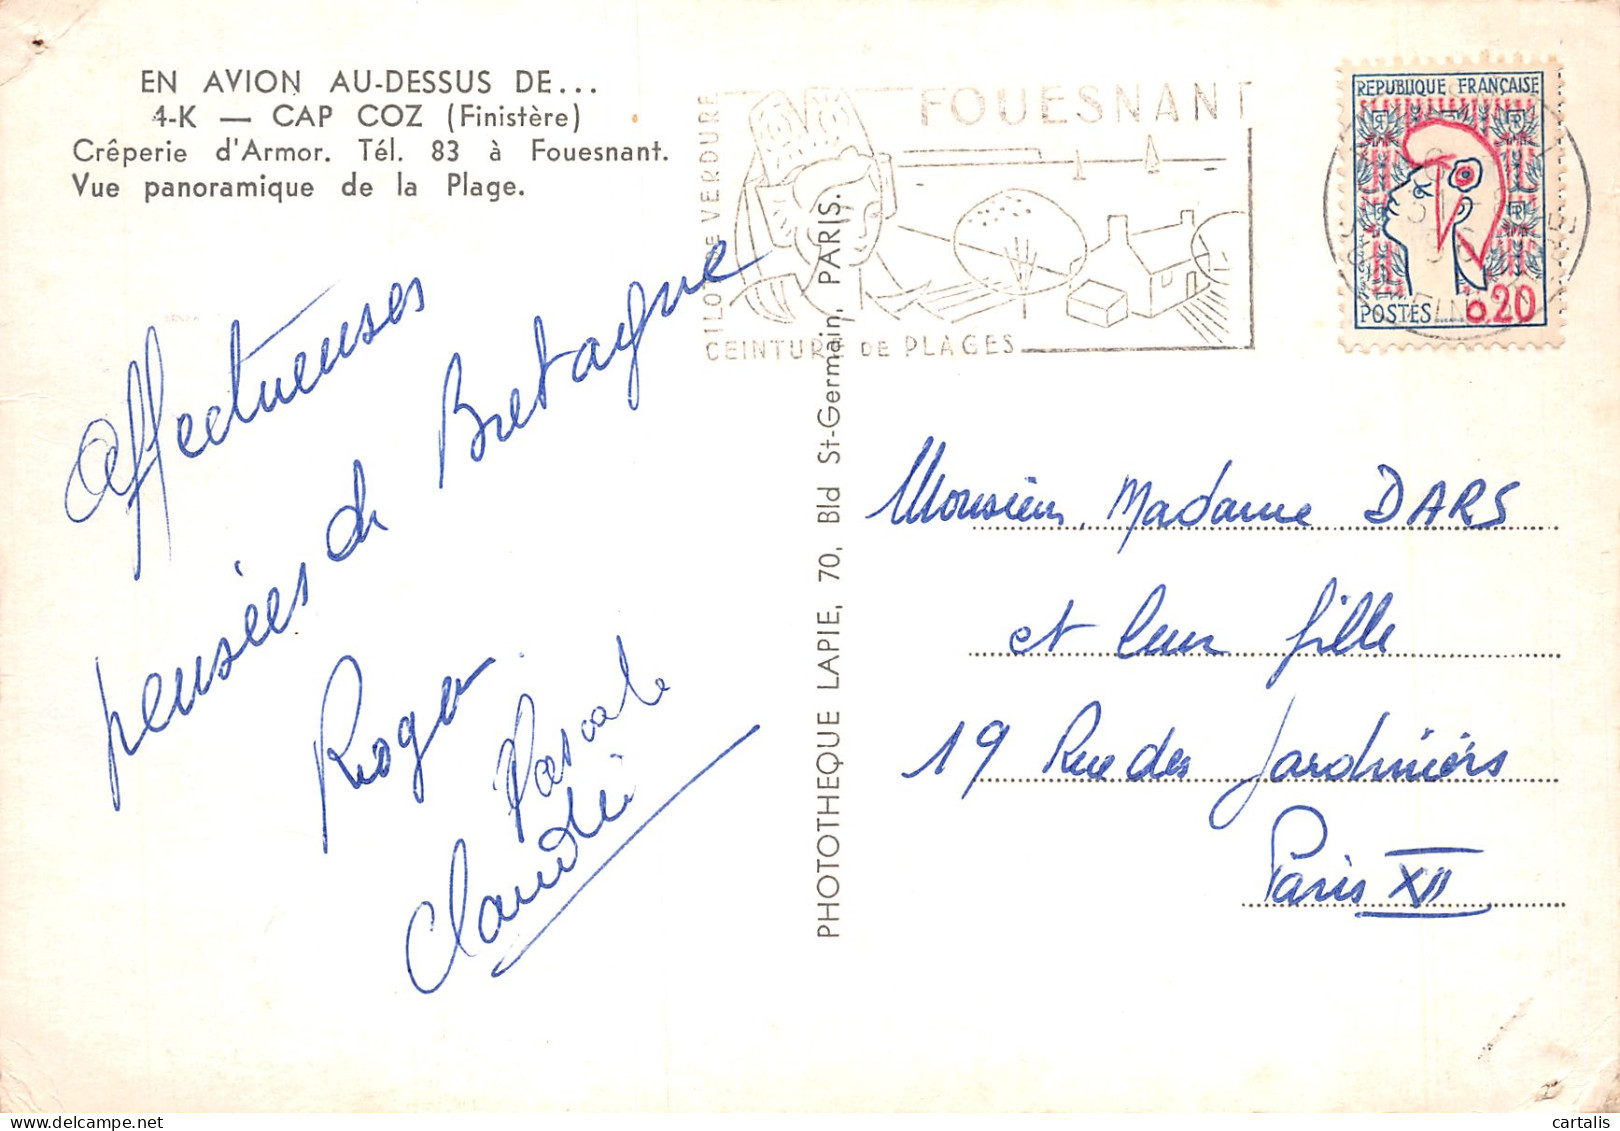 EN AVION AU-DESSUS DE...
4-K — CAP COZ (Finistère)
Crêperie d'Armor. Tél. 83 à Fouesnant.
Vue panoramique de la Plage.
Affectueuses
pensées de Bretagne
Roger
Pascale
Claudie
PHOTOTHEQUE LAPIE, 70, Bld St-Germain, PARIS.
FOUESNANT
DE VERDURE
CEINTURE DE PLAGES
REPUBLIQUE FRANÇAISE
POSTES 0.20
Monsieur, Madame DARS
et leur fille
19 Rue des Jardiniers
Paris XII
cartalis